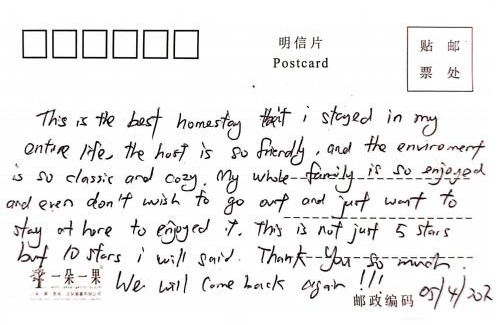 明信片
Postcard
贴 邮
票 处
This is the best homestay that i stayed in my
entire life, the host is so friendly, and the enviroment
is so classic and cozy. My whole family is so enjoyed
and even don't wish to go out and just want to
stay at here to enjoyed it. This is not just 5 stars
but 10 stars i will said. Thank You so much.
We will come back again !!!
一朵一果
邮政编码
05/4/202